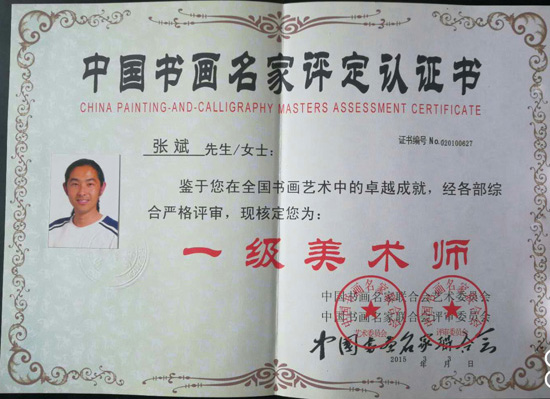 中国书画名家评定认证书
CHINA PAINTING-AND-CALLIGRAPHY MASTERS ASSESSMENT CERTIFICATE
证书编号 No.020100627
张斌 先生/女士：
鉴于您在全国书画艺术中的卓越成就，经各部综
合严格评审，现核定您为：
一级美术师
中国书画名家联合会艺术委员会
中国书画名家联合会评审委员会
艺术委员会 评审委员会
中国书画名家联合会
2015 年 3 月 日